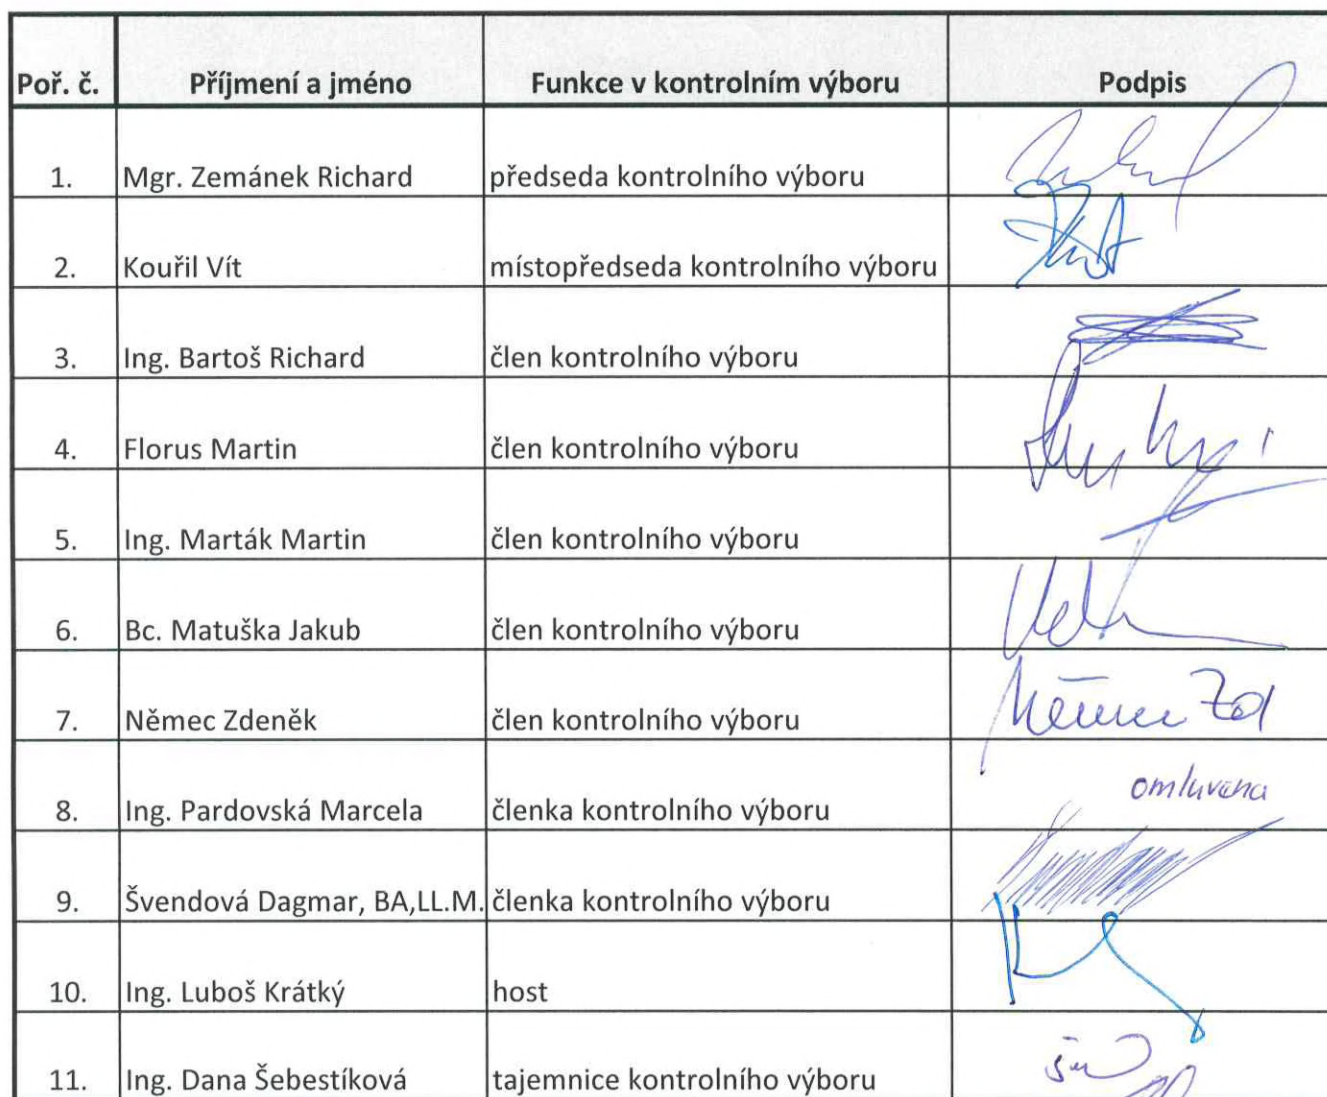 Poř. č. Příjmení a jméno Funkce v kontrolním výboru Podpis
1. Mgr. Zemánek Richard předseda kontrolního výboru
2. Kouřil Vít místopředseda kontrolního výboru
3. Ing. Bartoš Richard člen kontrolního výboru
4. Florus Martin člen kontrolního výboru
5. Ing. Marták Martin člen kontrolního výboru
6. Bc. Matuška Jakub člen kontrolního výboru
7. Němec Zdeněk člen kontrolního výboru Němec Zd
8. Ing. Pardovská Marcela členka kontrolního výboru omluvena
9. Švendová Dagmar, BA,LL.M. členka kontrolního výboru
10. Ing. Luboš Krátký host
11. Ing. Dana Šebestíková tajemnice kontrolního výboru